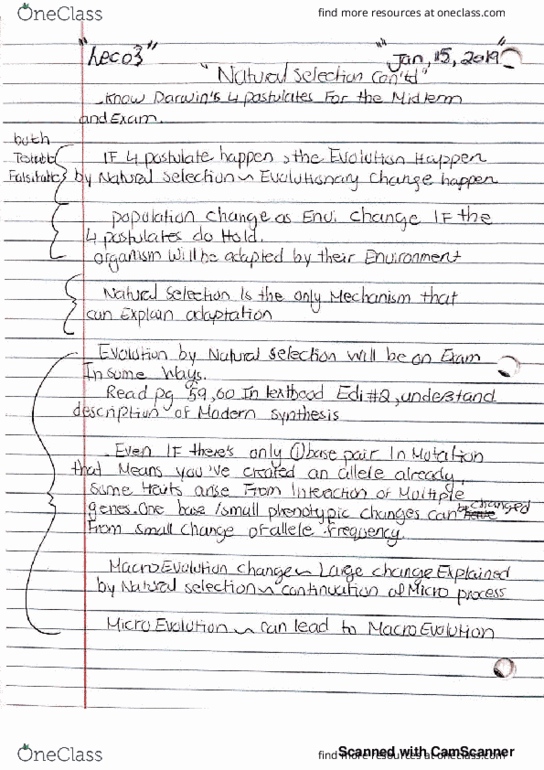 OneClass
find more resources at oneclass.com
"Lec03"
"Jan, 15, 2019"
"Natural Selection Con'td"
Know Darwin's 4 postulates For the Midterm
and Exam.
both
IF 4 postulate happen, the Evolution Happen
by Natural Selection ~ Evolutionary Change happen
population change as Envi. change IF the
4 postulates do Hold.
organism will be adapted by their Environment
Natural Selection Is the only Mechanism that
can Explain adaptation
Evolution by Natural Selection will be on Exam
In some Ways.
Read pg 59,60 In textbood Edi #2, understand
description of Modern Synthesis
Even IF there's only ① base pair In Mutation
that Means you've created an allele already.
Some traits arise From Interaction of Multiple
genes. One base / small phenotypic changes can be changed
From small change of allele frequency.
Macro Evolution change ~ Large change Explained
by Natural selection ~ continuation of Micro process
Micro Evolution ~ can lead to Macro Evolution
OneClass
find more resources at oneclass.com
Scanned with CamScanner